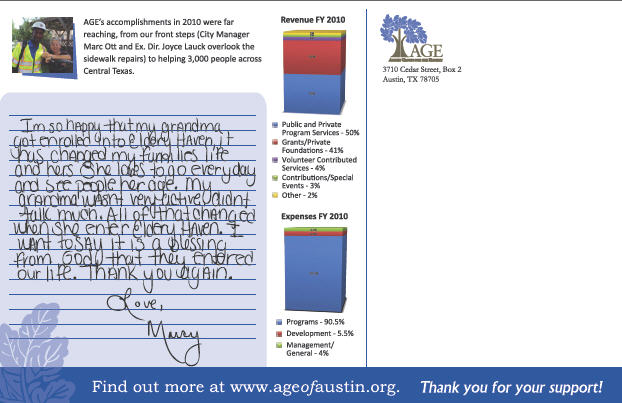 AGE's accomplishments in 2010 were far
reaching, from our front steps (City Manager
Marc Ott and Ex. Dir. Joyce Lauck overlook the
sidewalk repairs) to helping 3,000 people across
Central Texas.
I'm so happy that my grandma
got enrolled into Eldery Haven, it
has changed my families life
and hers. She loves to go everyday
and see people her age. My
grandma wasnt very active, didnt
talk much. All of that changed
when she enter eldery Haven. I
want to say it is a blessing
from God that they entered
our life. Thank you again.
Love,
Mary
Revenue FY 2010
Public and Private
Program Services - 50%
Grants/Private
Foundations - 41%
Volunteer Contributed
Services - 4%
Contributions/Special
Events - 3%
Other - 2%
Expenses FY 2010
Programs - 90.5%
Development - 5.5%
Management/
General - 4%
AGE
3710 Cedar Street, Box 2
Austin, TX 78705
Find out more at www.ageofaustin.org. Thank you for your support!